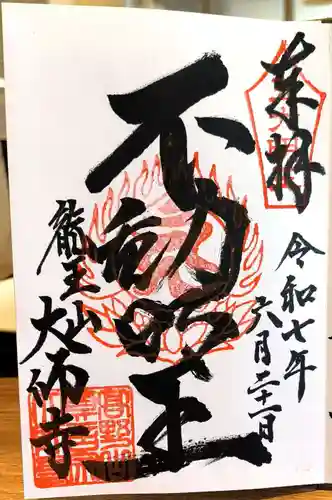 奉拝
令和七年
六月二十一日
不動明王
龍王山
大師寺
高野山